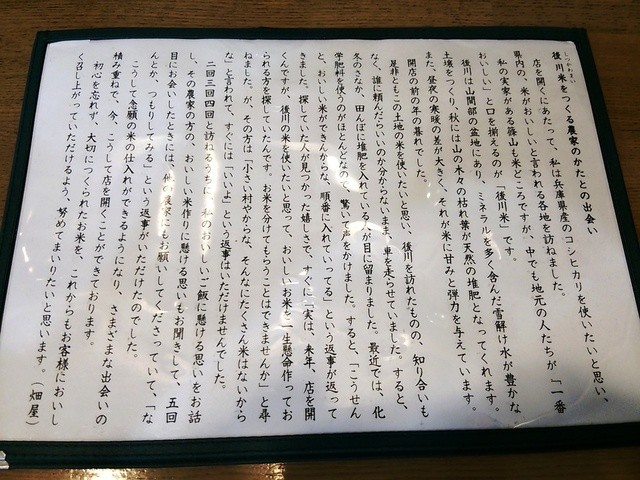 しつかわまい
後川米をつくる農家のかたとの出会い
店を開くにあたって、私は兵庫県産のコシヒカリを使いたいと思い、
県内の、米がおいしいと言われる各地を訪ねました。
私の実家がある篠山も米どころですが、中でも地元の人たちが「一番
おいしい」と口を揃えるのが「後川米」です。
後川は山間部の盆地にあり、ミネラルを多く含んだ雪解け水が豊かな
土壌をつくり、秋には山の木々の枯れ葉が天然の堆肥となってくれます。
また、昼夜の寒暖の差が大きく、それが米に甘みと弾力を与えています。
開店の前の年の暮れでした。
是非ともこの土地の米を使いたいと思い、後川を訪れたものの、知り合いも
なく、誰に頼んだらいいのか分からないまま、車を走らせていました。すると、
冬のさなか、田んぼに堆肥を入れている人が目に留まりました。最近では、化
学肥料を使うのがほとんどなので、驚いて声をかけました。すると、「こうせん
と、おいしい米ができんからな、順番に入れていってる」という返事が返って
きました。探していた人が見つかった嬉しさで、すぐに「実は、来年、店を開
くんですが、後川の米を使いたいと思って、おいしいお米を一生懸命作ってお
られる方を探していたんです。お米を分けてもらうことはできませんか」と尋
ねました。が、その方は「小さい村やからな、そんなにたくさん米はないから
な」と言われて、すぐには「いいよ」という返事はいただけませんでした。
二回三回四回と訪ねるうちに、私のおいしいご飯に懸ける思いをお話
し、その農家の方の、おいしい米作りに懸ける思いもお聞きして、五回
目にお会いしたときには、他の農家にもお願いしてくださっていて、「な
んとか、つもりしてみる」という返事がいただけたのでした。
こうして念願の米の仕入れができるようになり、さまざまな出会いの
積み重ねで、今、こうして店を開くことができております。
初心を忘れず、大切につくられたお米を、これからもお客様においし
く召し上がっていただけるよう、努めてまいりたいと思います。（畑屋）